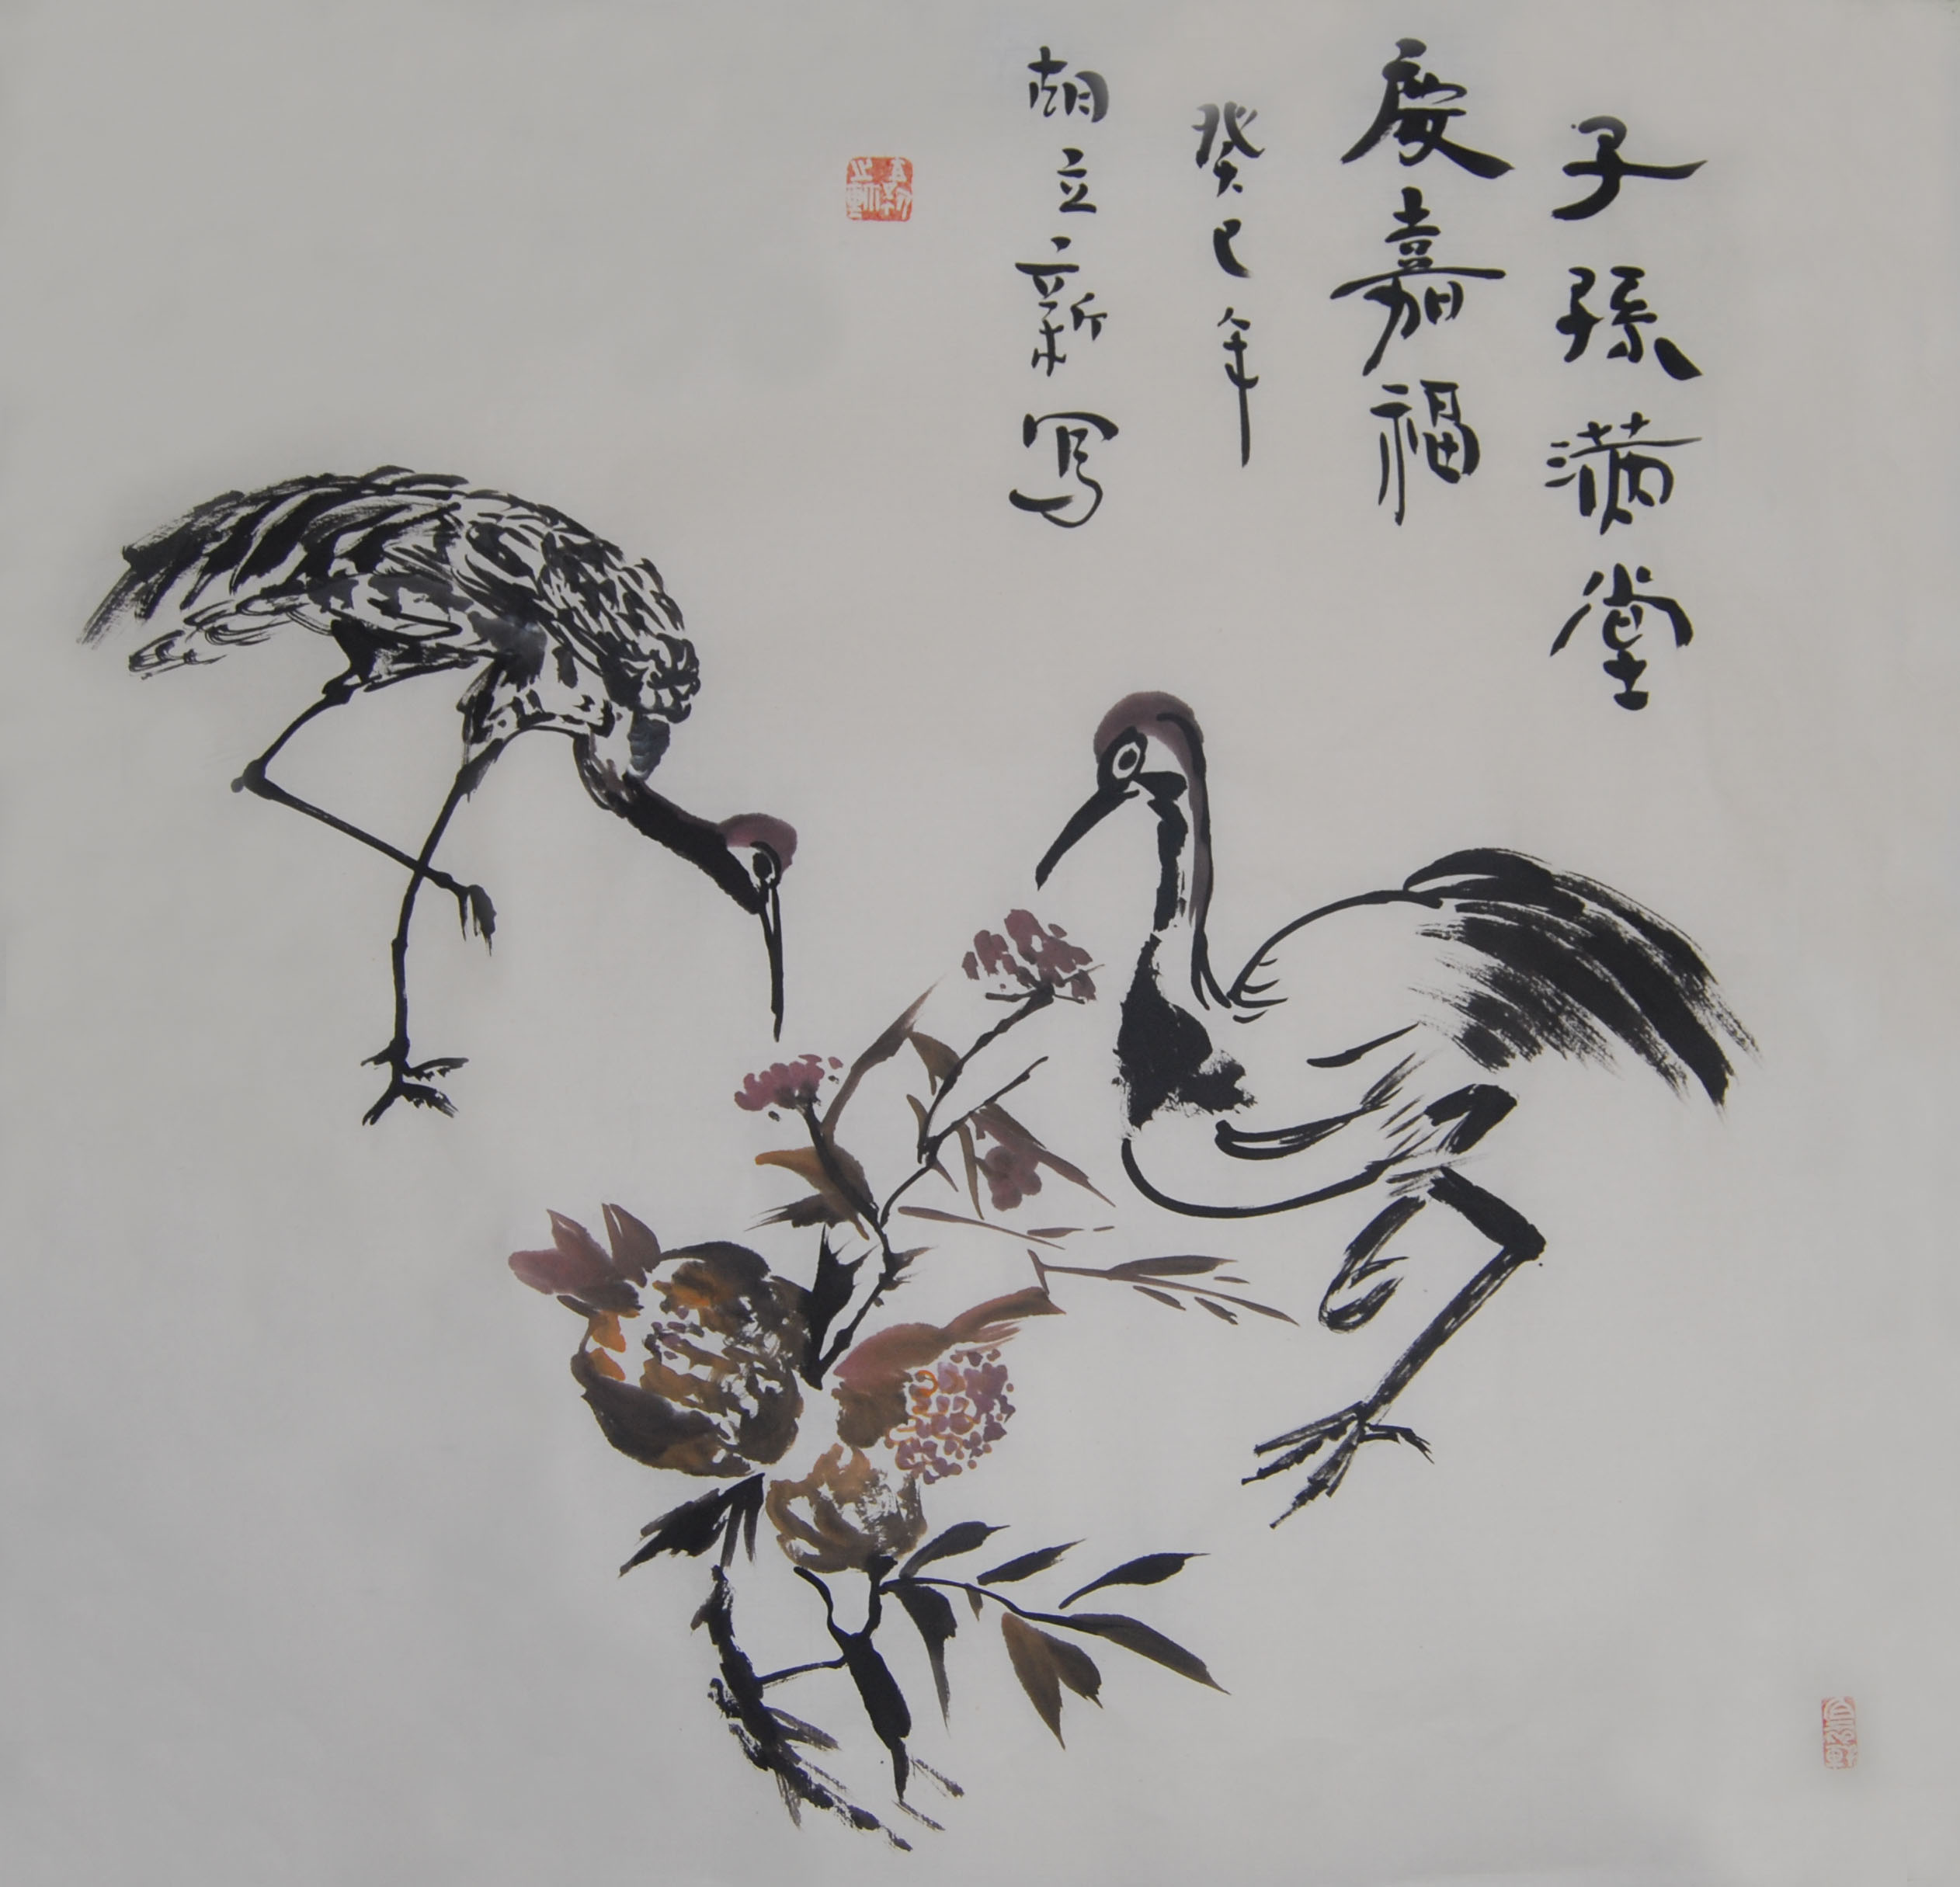 子孫满堂
慶嘉福
癸巳年
胡立新写